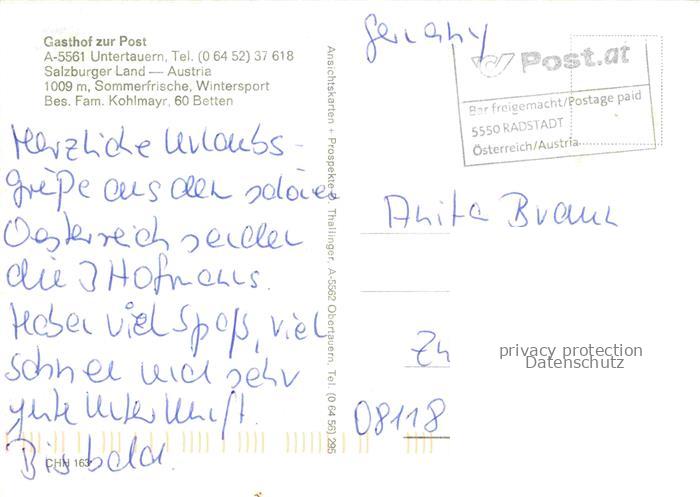 Gasthof zur Post
A-5561 Untertauern, Tel. (0 64 52) 37 618
Salzburger Land — Austria
1009 m, Sommerfrische, Wintersport
Bes. Fam. Kohlmayr, 60 Betten
Herzliche Urlaubs-
grüße aus dem schönen
Oesterreich senden
die 3 Hofmanns.
Haben viel Spaß, viel
schnee und sehr
gute Unterkunft.
Bis bald.
CHH 163
Ansichtskarten + Prospekte d. Thallinger, A-5562 Obertauern, Tel. (0 64 56) 295
Germany
Post.at
Bar freigemacht/Postage paid
5550 RADSTADT
Österreich/Austria
Anita Braun
08118
privacy protection
Datenschutz